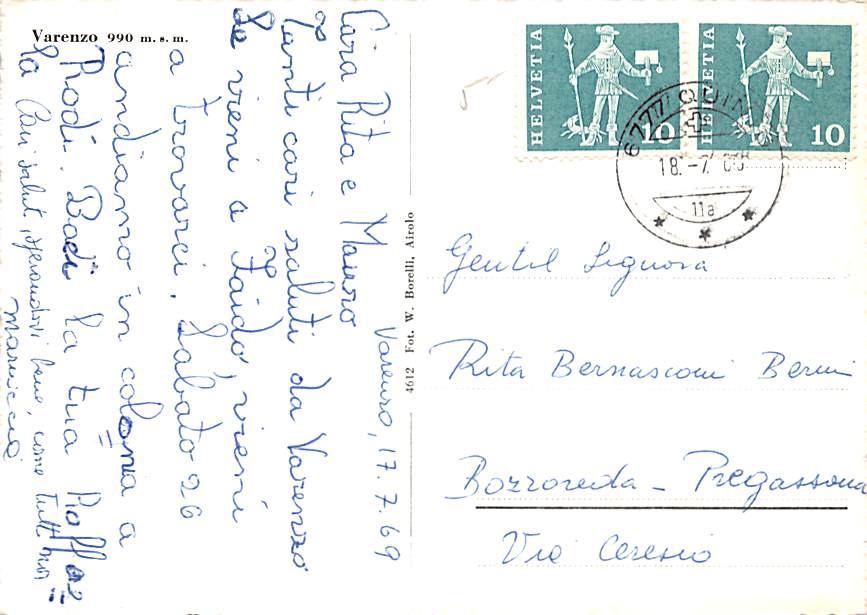 Varenzo 990 m. s. m.
Varenzo, 17.7.69
Cara Rita e Mauro
Tanti cari saluti da Varenzo
Se vieni a Faido, vieni
a trovarci. Sabato 26
andiamo in colonia a
Rodi. Baci la tua
Cari saluti sperandovi bene, come tutti noi
Mariuccia
4612 Fot. W. Borelli, Airolo
HELVETIA 10
HELVETIA 10
6777 QUINTO
18.-7.
11a
Gentil Signora
Rita Bernasconi Berni
Bozzoreda - Pregassona
Via Ceresio
5